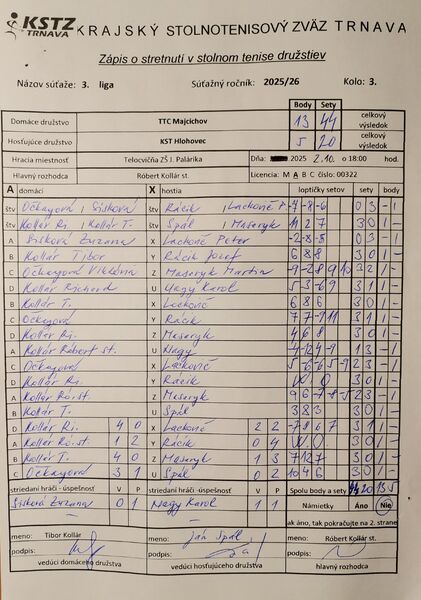 KSTZ TRNAVA KRAJSKÝ STOLNOTENISOVÝ ZVÄZ TRNAVA
Zápis o stretnutí v stolnom tenise družstiev
Názov súťaže: 3. liga Súťažný ročník: 2025/26 Kolo: 3.
Body Sety
Domáce družstvo TTC Majcichov 13 44 celkový výsledok
Hosťujúce družstvo KST Hlohovec 5 20 celkový výsledok
Hracia miestnosť Telocvičňa ZŠ J. Palárika Dňa: 2025 2.10. o 18:00
Hlavný rozhodca Róbert Kollár st. Licencia: M A B C číslo: 00322
A domáci X hostia loptičky setov sety body
štv Očkayová / Sisková štv Rácik / Lackovič P. -7 -8 -6 0 3 - 1
štv Kollár Ri. / Kollár T. štv Spál / Maseryk 11 2 7 3 0 1 -
A Sisková Zuzana X Lackovič Peter -2 -8 -5 0 3 - 1
B Kollár Tibor Y Rácik Jozef 6 8 8 3 0 1 -
C Očkayová Viktória Z Maseryk Martin 3 2 1 -
D Kollár Richard U Nagy Karol 3 1 1 -
B Kollár T. X Lackovič 6 8 6 3 0 1 -
C Očkayová Y Rácik 3 1 1 -
D Kollár Ri. Z Maseryk 4 6 8 3 0 1 -
A Kollár Róbert st. U Nagy 1 3 - 1
C Očkayová X Lackovič 2 3 - 1
D Kollár Ri. Y Rácik W O 3 0 1 -
A Kollár Rób.st. Z Maseryk 2 3 - 1
B Kollár T. U Spál 3 8 3 3 0 1 -
D Kollár Ri. 4 0 X Lackovič 2 2 -7 8 6 7 3 1 1 -
A Kollár Rób.st. 1 2 Y Rácik 0 4 W O 3 0 1 -
B Kollár T. 4 0 Z Maseryk 1 3 7 12 7 3 0 1 -
C Očkayová 3 1 U Spál 0 2 10 4 6 3 0 1 -
striedaní hráči -úspešnosť V P striedaní hráči -úspešnosť V P Spolu body a sety 44 20 13 5
Sisková Zuzana 0 1 Nagy Karol 1 1 Námietky Áno Nie
ak áno, tak pokračujte na 2. strane
meno: Tibor Kollár meno: Ján Spál meno: Róbert Kollár st.
podpis: podpis: podpis:
vedúci domáceho družstva vedúci hosťujúceho družstva hlavný rozhodca